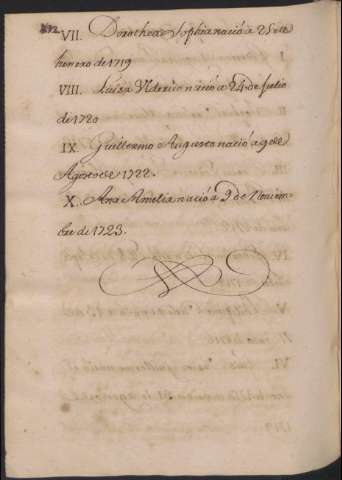 VII. Dorothea Sophia nació a 25 de
henero de 1719
VIII. Luisa Vlderica nació a 24 de Julio
de 1720
IX. Guillermo Augusto nació a 9 de
Agosto de 1722.
X. Ana Amelia nació a 9 de Noviem-
bre de 1723.